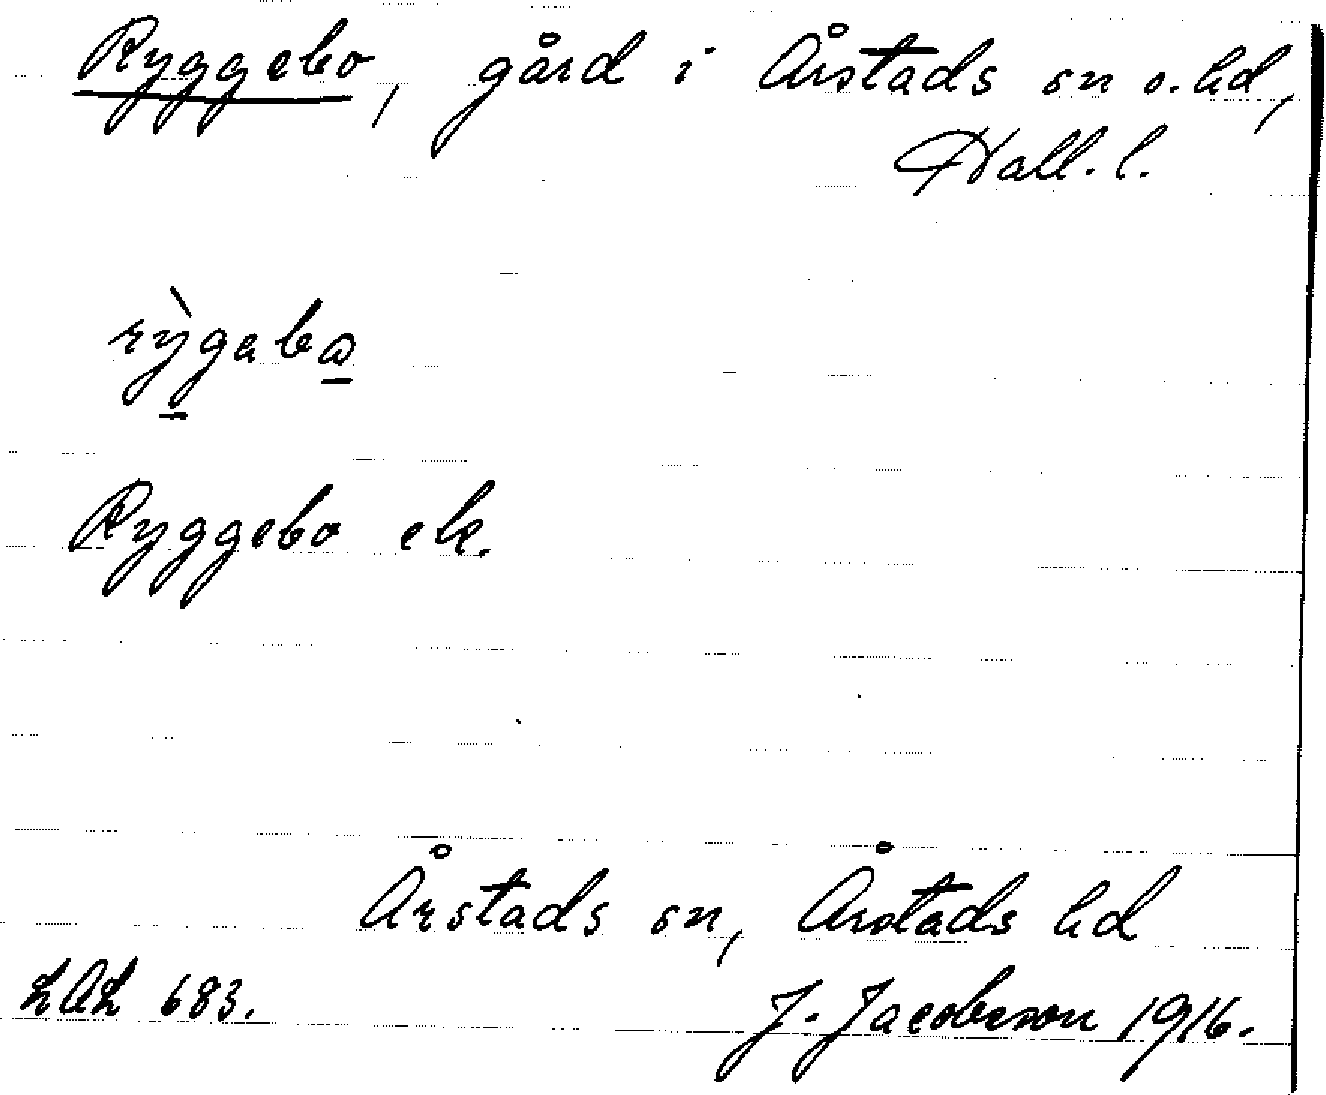 Ryggebo, gård i Årstads sn o. hd,
Hall. l.
rỳgabo
Ryggebo ek.
Årstads sn, Årstads hd
LAL 683.
J. Jacobsson 1916.